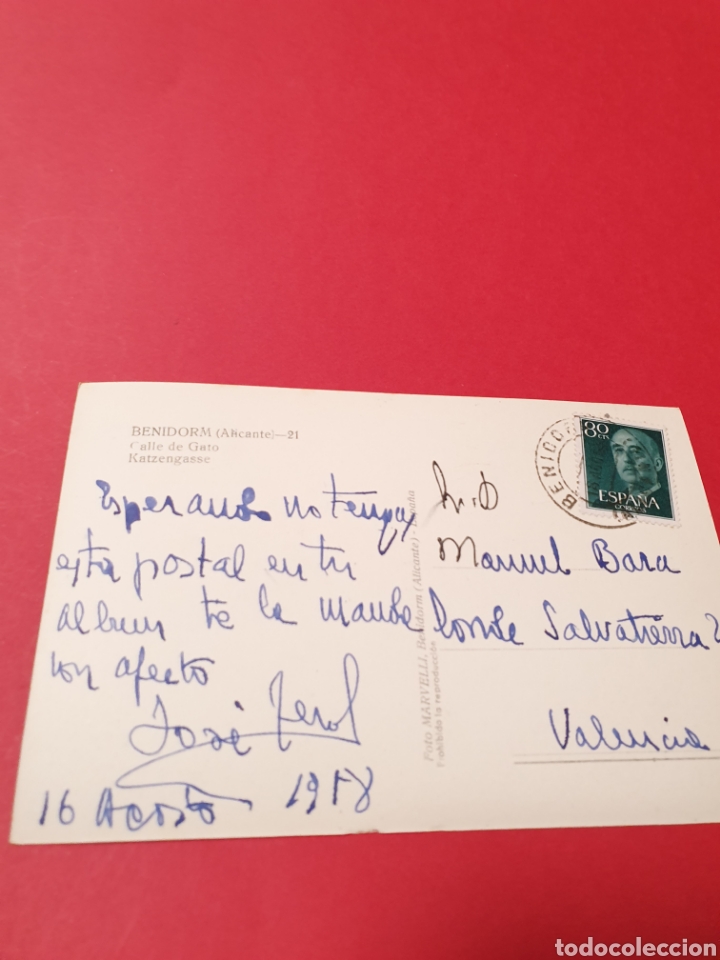 BENIDORM (Alicante)—21
Calle de Gato
Katzengasse
Esperando no tengas
esta postal en tu
album te la mando
con afecto
José
16 Agosto 1958
Foto MARVELLI, Benidorm (Alicante) - España
Prohibida la reproducción
80
CTS
ESPAÑA
CORREOS
BENIDOR
Manuel Bara
Conde Salvatierra 2
Valencia
todocoleccion